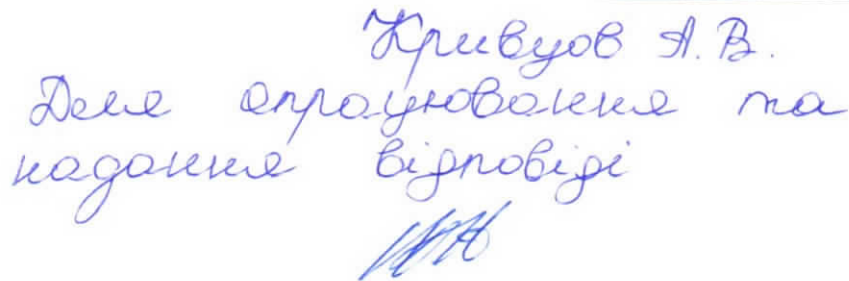 Кривцов А.В.
Для опрацювання та
надання відповіді